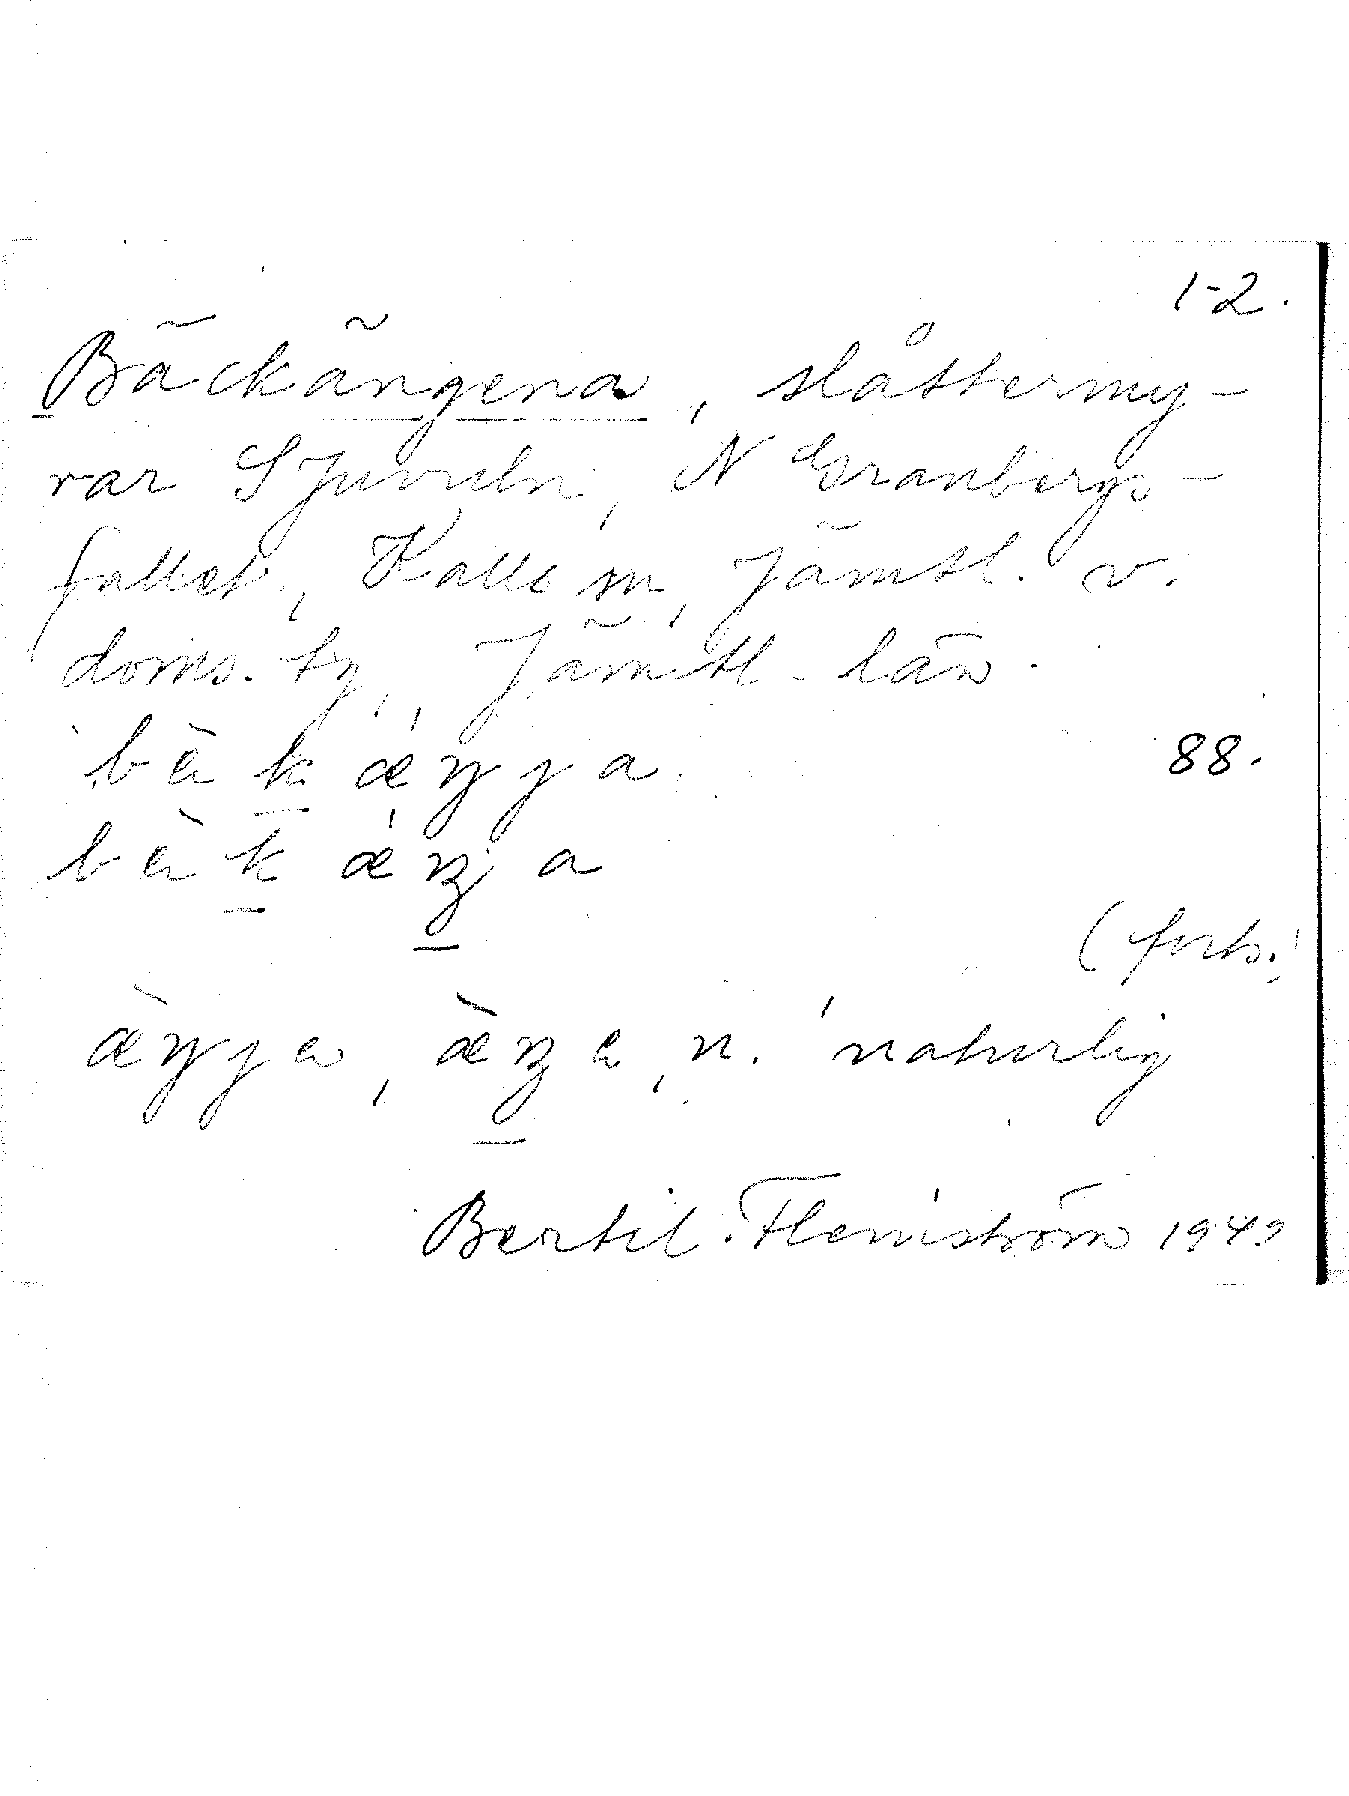 1-2.
Bäckängena, slåttermy-
rar S Juvuln, N Granbergs-
fallet, Kalls sn, Jämtl. v.
doms. tg, Jämtl. län.
bèkǽŋja 88.
bèkǽŋa
(forts.)
æ̀ŋja, æ̀ŋa, n. 'naturlig
Bertil Flemström 1949